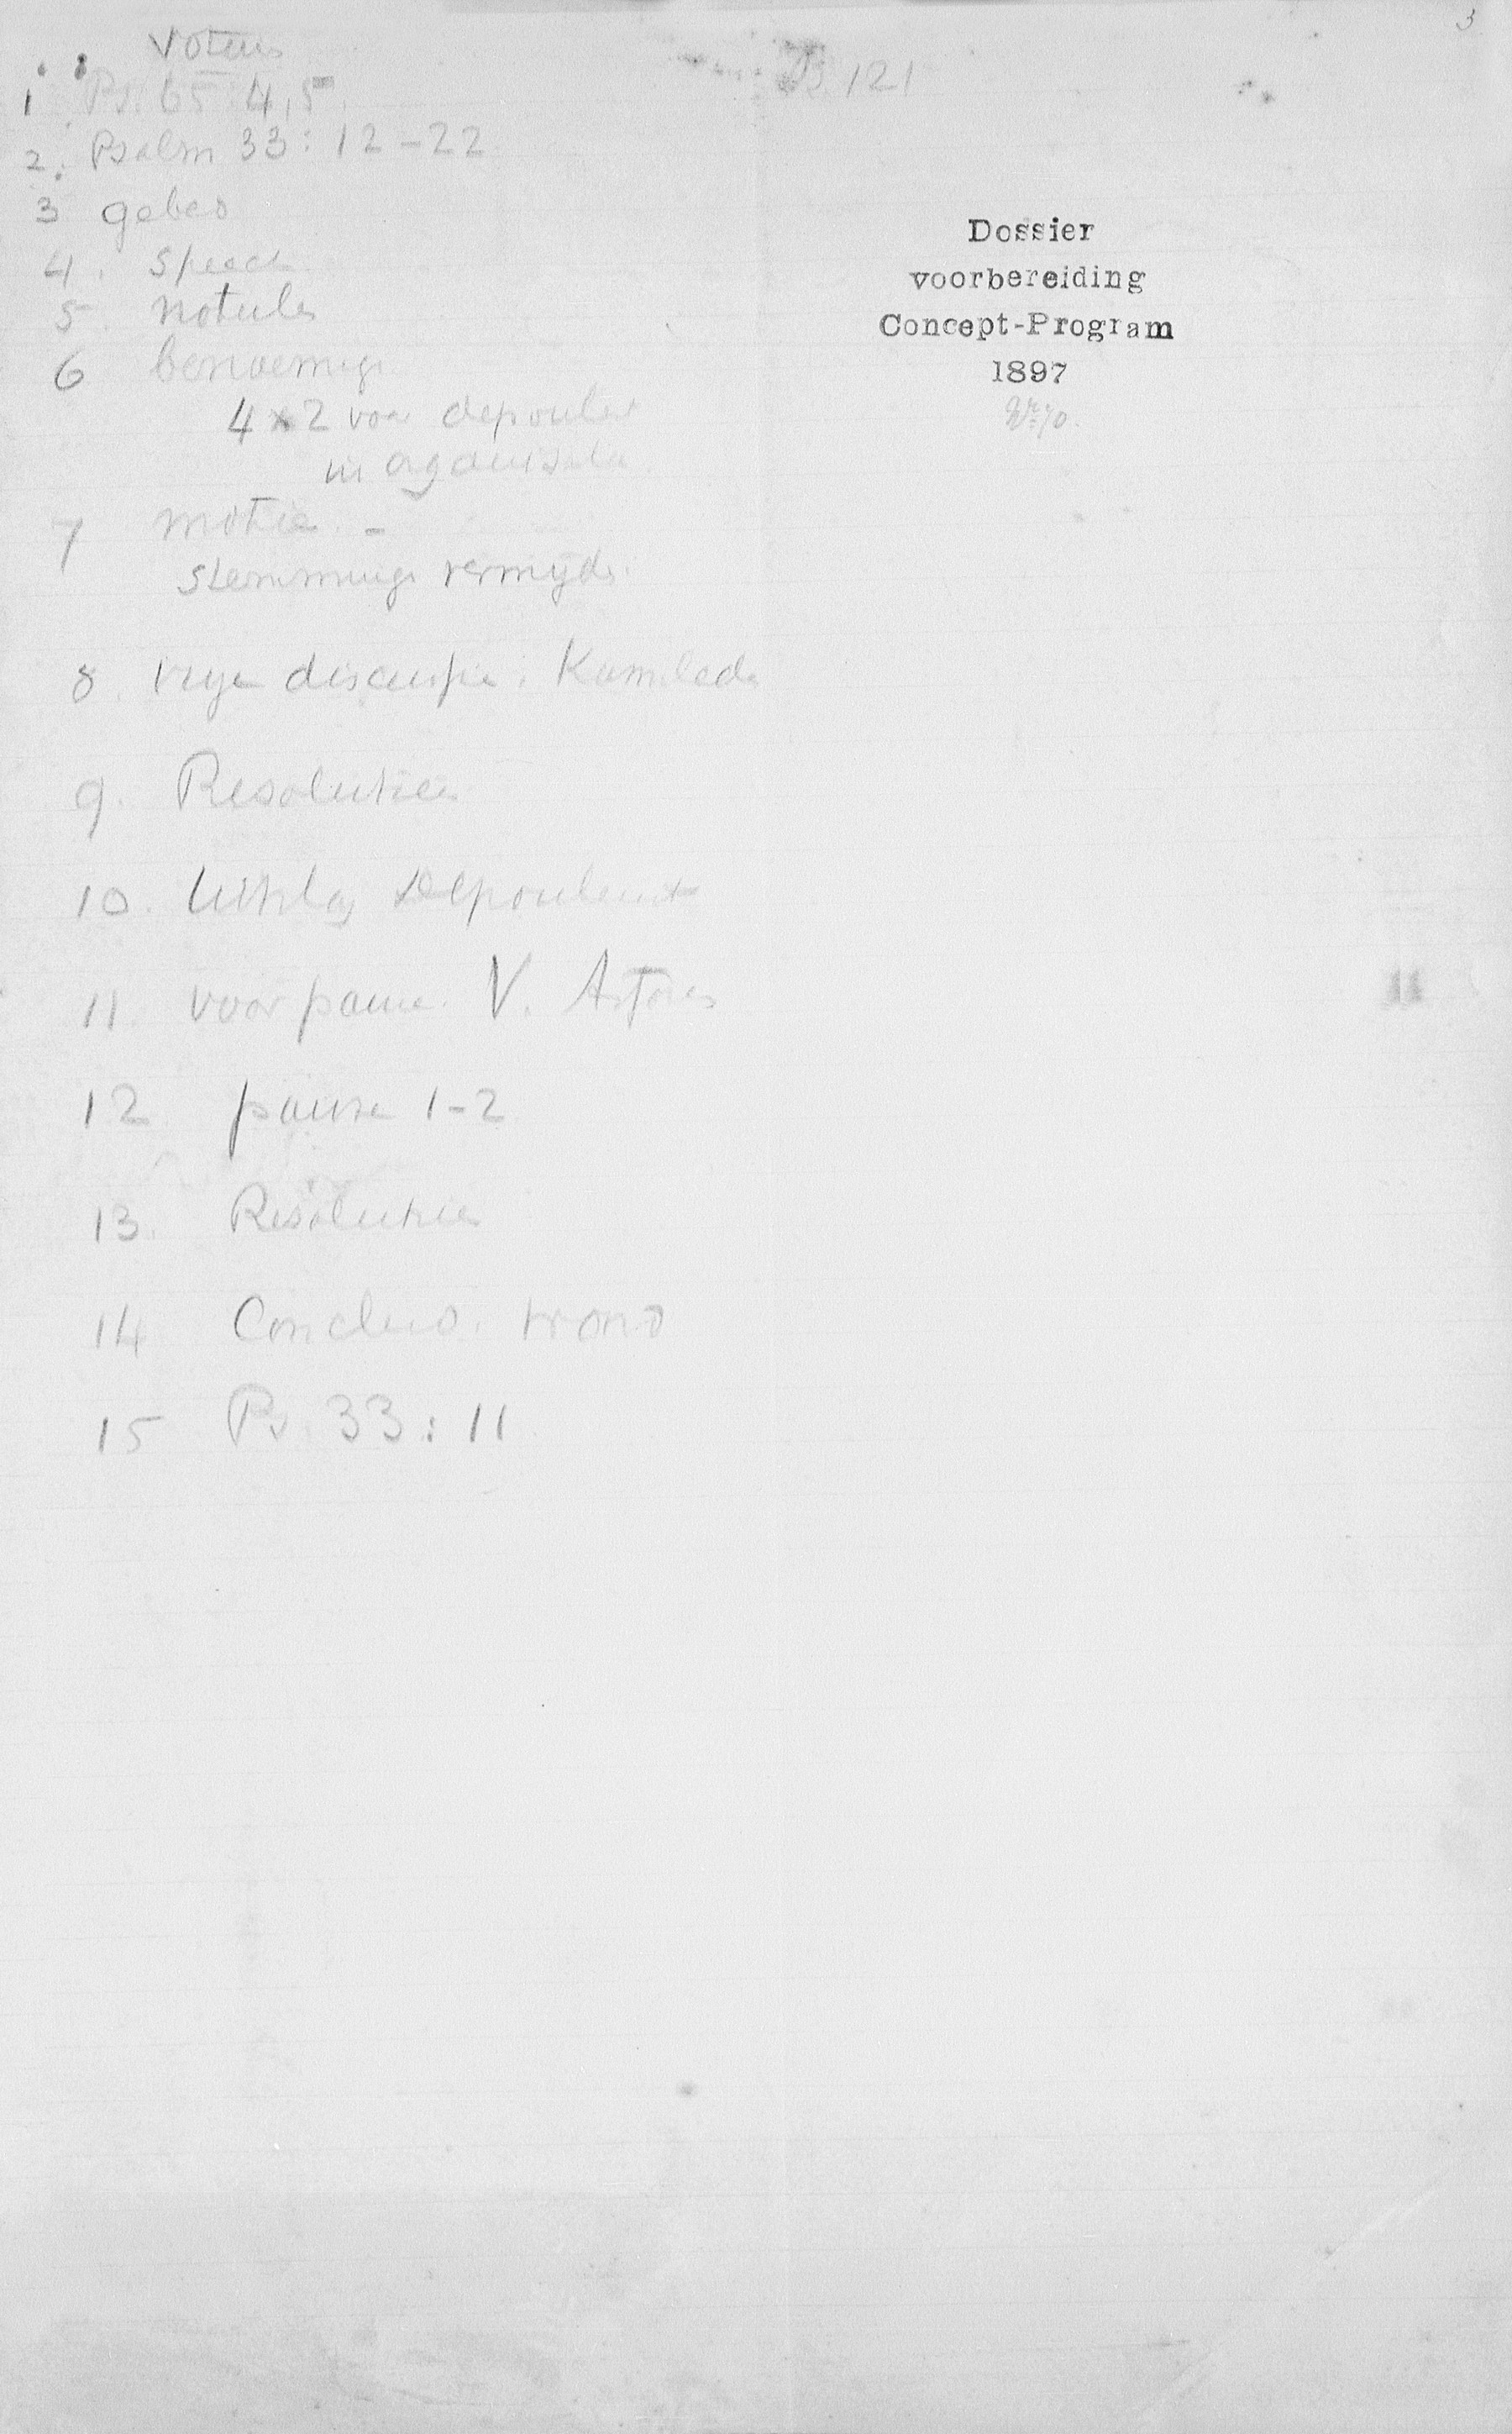 3
Votum
Ps. 121
1 Ps. 65:4,5
2. Psalm 33: 12-22
3 gebed
4. Speech
5. notulen
6 benoeming
4 x 2 voor depouill
in organisatie
7 motie -
stemming vermijden
8. vrije discussie. Kamerleden
9. Resolutien
10. Uitslag Depouillement
11. voor pauze. V.
12 pauze 1-2
13. Resolutien
14 Conclus.
15 Ps. 33: 11
Dossier
voorbereiding
Concept-Program
1897